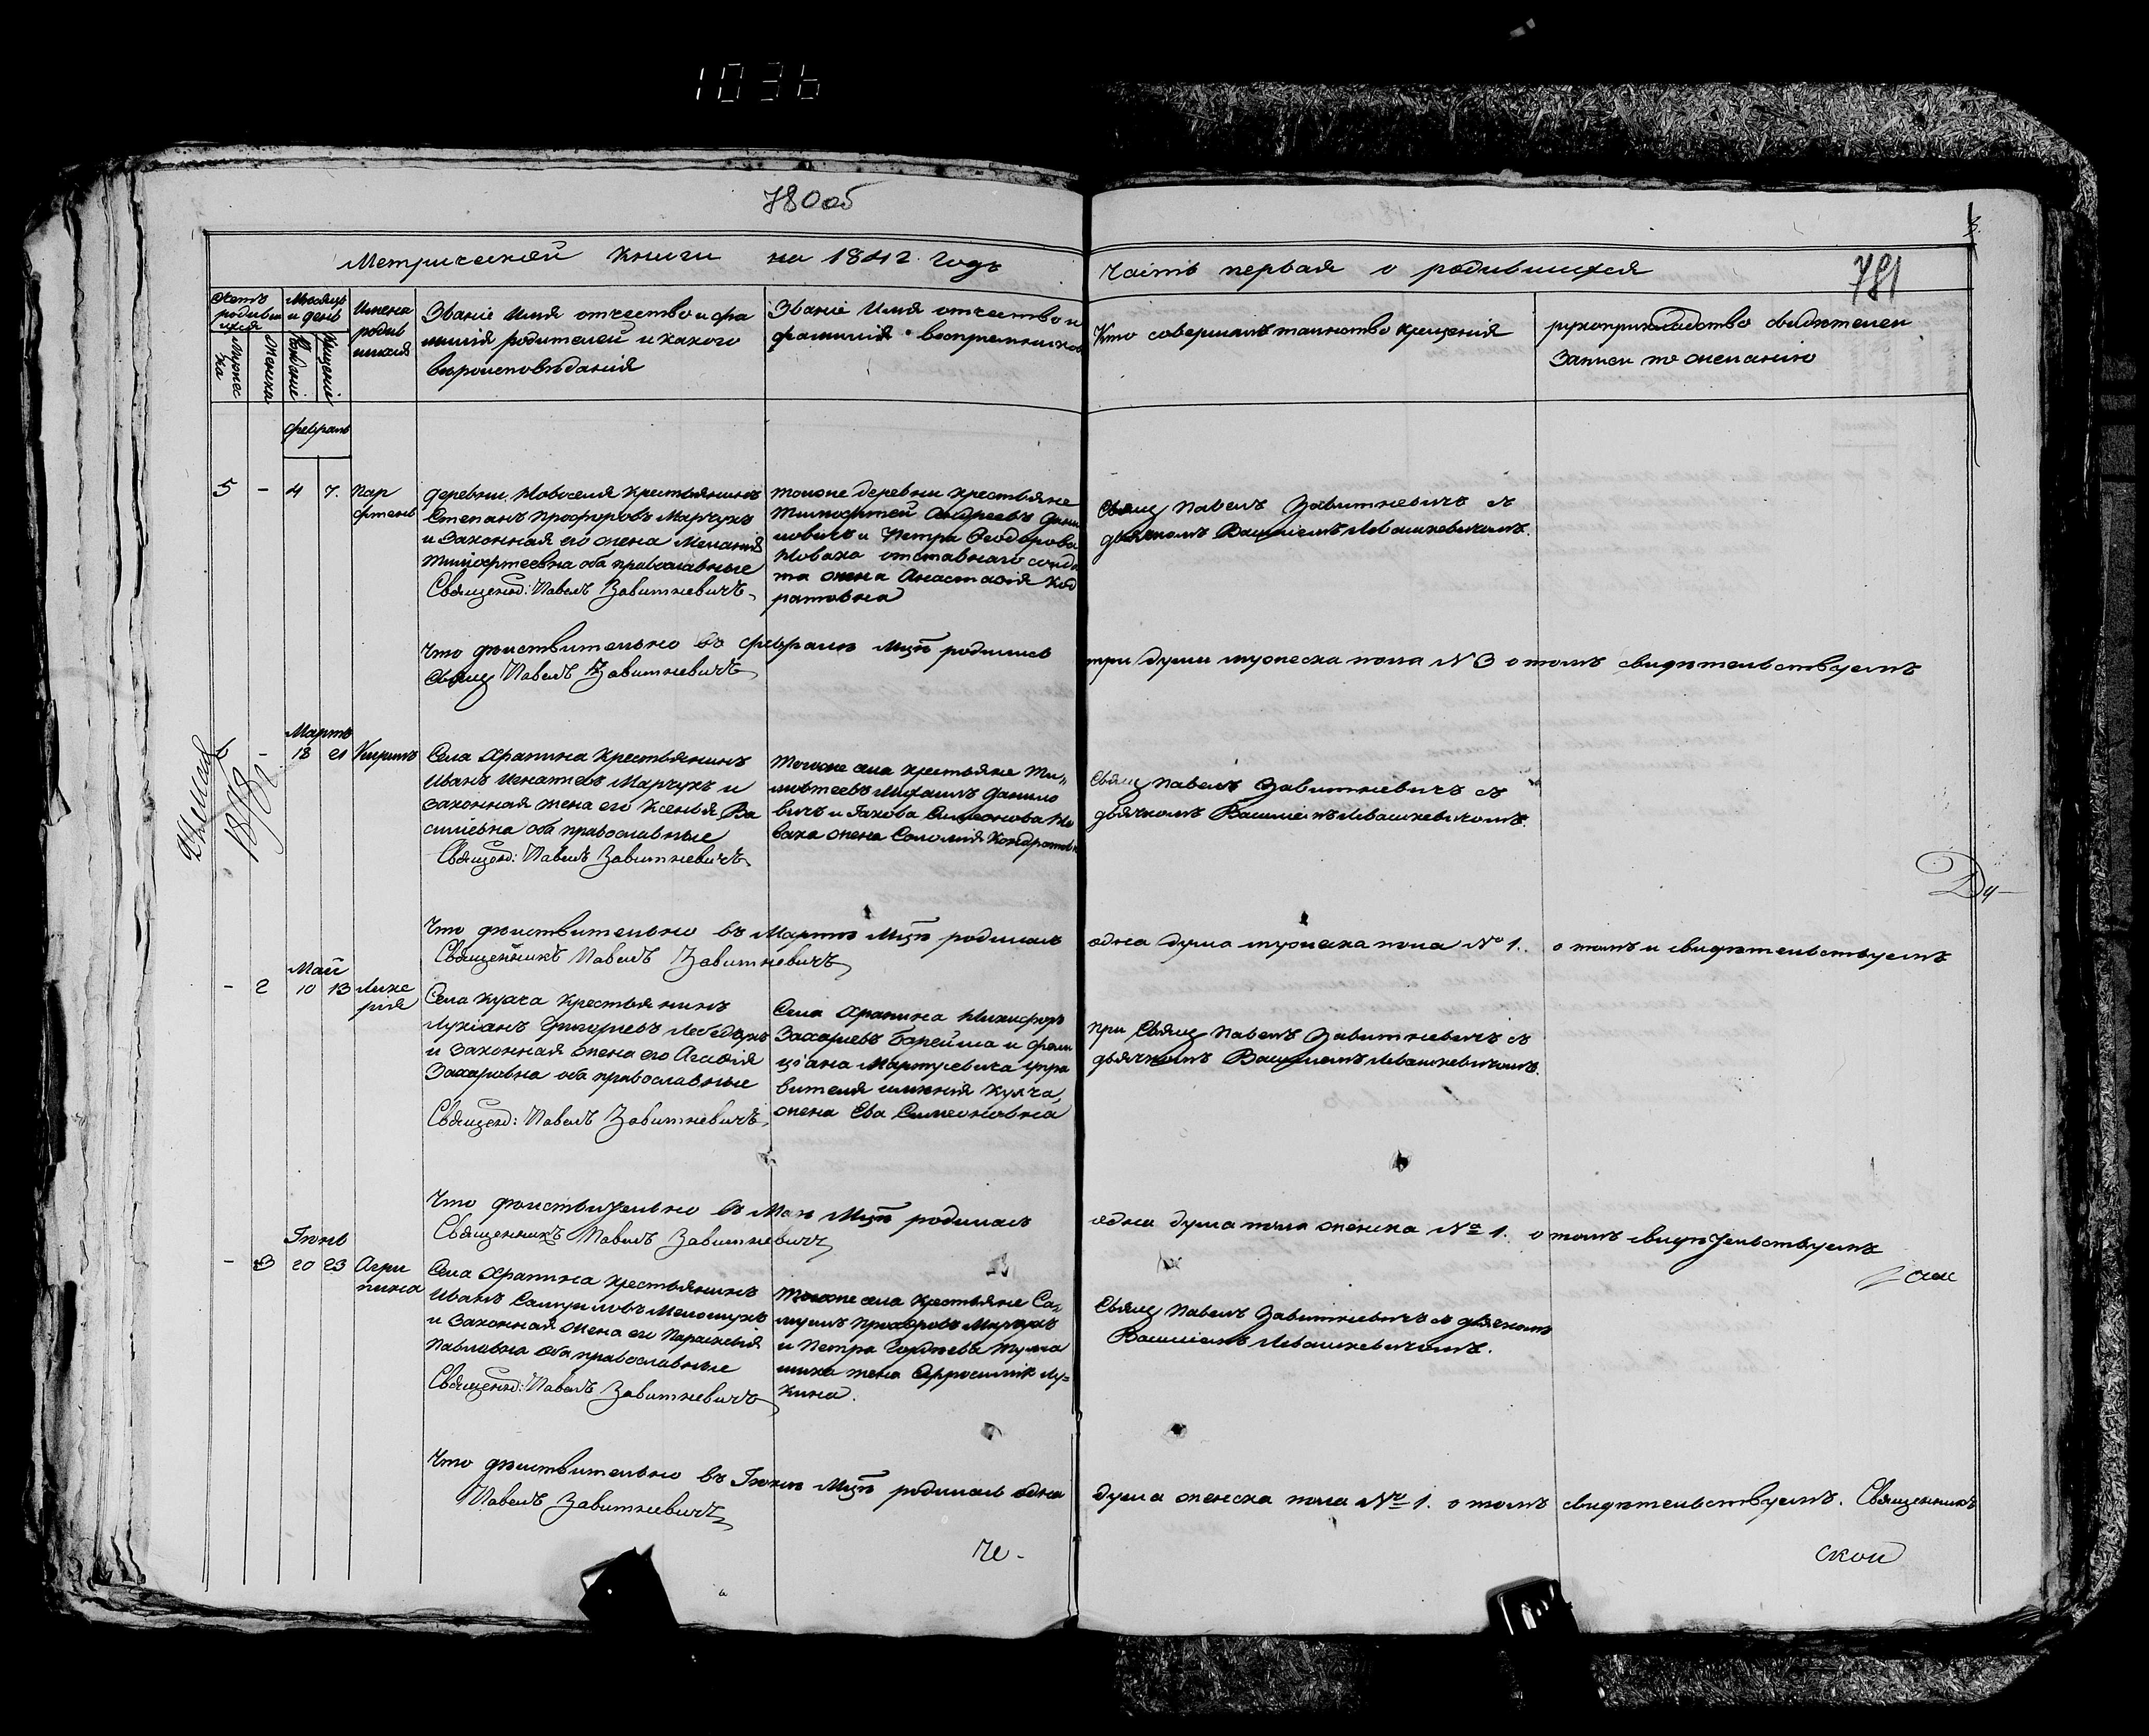 1036
780об
Метрической книги на 1842 годъ
часть первая о родившихся
781
Счетъ родивш ихся
Мужес ка
женска
Месяцъ и день
Рожденіе
Крещеніе
Имена родив шихся
Званіе Имя отчество и фа
милія родителей и какого
вероисповѣданія
Званіе Имя отчество и
фамилія воспреемниковъ
Кто совершалъ таинство крещенія
рукоприкладство свидетелей
Записи по желанію
февраль
5 - 4 7. Пар
фтенъ
деревни Новоселя крестьянинъ
Степанъ Прохоровъ Марчукъ
и законная его жена Меланія
Тимофтеевна оба православные
Священ: Павелъ Завитневичъ
тойже деревни крестьяне
Тимофтей Андреевъ Дани
ловичъ и Петра Ѳеодорова
Новака отставнаго солда
та жена Анастасія Код
ратовна
Свящ Павелъ Завитневичъ съ
дьячкомъ Василіемъ Левашкевичомъ.
Что дѣиствительно въ февралѣ Мцѣ родились
три души мужеска пола N 3 о томъ свидѣтельствуетъ
Свящ Павелъ Завитневичъ
Мартъ
- 18 21 Кирилъ
Села Храпина Крестьянинъ
Иванъ Игнатіевъ Марчукъ и
законная жена его Ксенья Ва
силіевна оба православные
Священ: Павелъ Завитневичъ
Тогоже села крестьяне Ти
мовтеевъ Михаилъ Данило
вичъ и Іакова Симеонова Но
вака жена Соломія Кондратов
Свящ Павелъ Завитневичъ съ
дьячкомъ Василіемъ Левашкевичомъ.
Ду
Что дѣиствительно въ Мартѣ Мцѣ родилась
одна душа мужеска пола № 1. о томъ и свидѣтельствуетъ
Священникъ Павелъ Завитневичъ
Май
- 2 10 13 Лике
рія
Села Кухча Крестьянинъ
Лукіанъ Григорьевъ
и законная жена его Агафія
Захаровна оба православные
Священ: Павелъ Завитневичъ
Села Храпина Никифоръ
Захаріевъ и Фели
ціана Мартусевича упра
вителя имѣнія Кухча,
жена Ева Симеоновна
при Свящ Павелъ Завитневичъ съ
дьячкомъ Василіемъ Левашкевичомъ.
Что дѣиствительно въ Маѣ Мцѣ родилась
одна душа пола женска № 1. о томъ свидѣтельствуетъ
Священникъ Павелъ Завитневичъ
Іюнь
- 3 20 23 Агри
пина
Села Храпина Крестьянинъ
Иванъ Самуиловъ
и законная жена его Параскевія
Павловна оба православные
Священ: Павелъ Завитневичъ
Тогоже села крестьяне Са
муилъ Прохоровъ Марчукъ
и Петра Гордѣева
жена Афросинія Лу
кина.
Свящ Павелъ Завитневичъ съ дьячкомъ
Василіемъ Левашкевичомъ.
Что дѣиствительно въ Іюнѣ Мцѣ родилась одна
душа женска пола № 1. о томъ свидѣтельствуетъ. Священникъ
Павелъ Завитневичъ
че-
ской